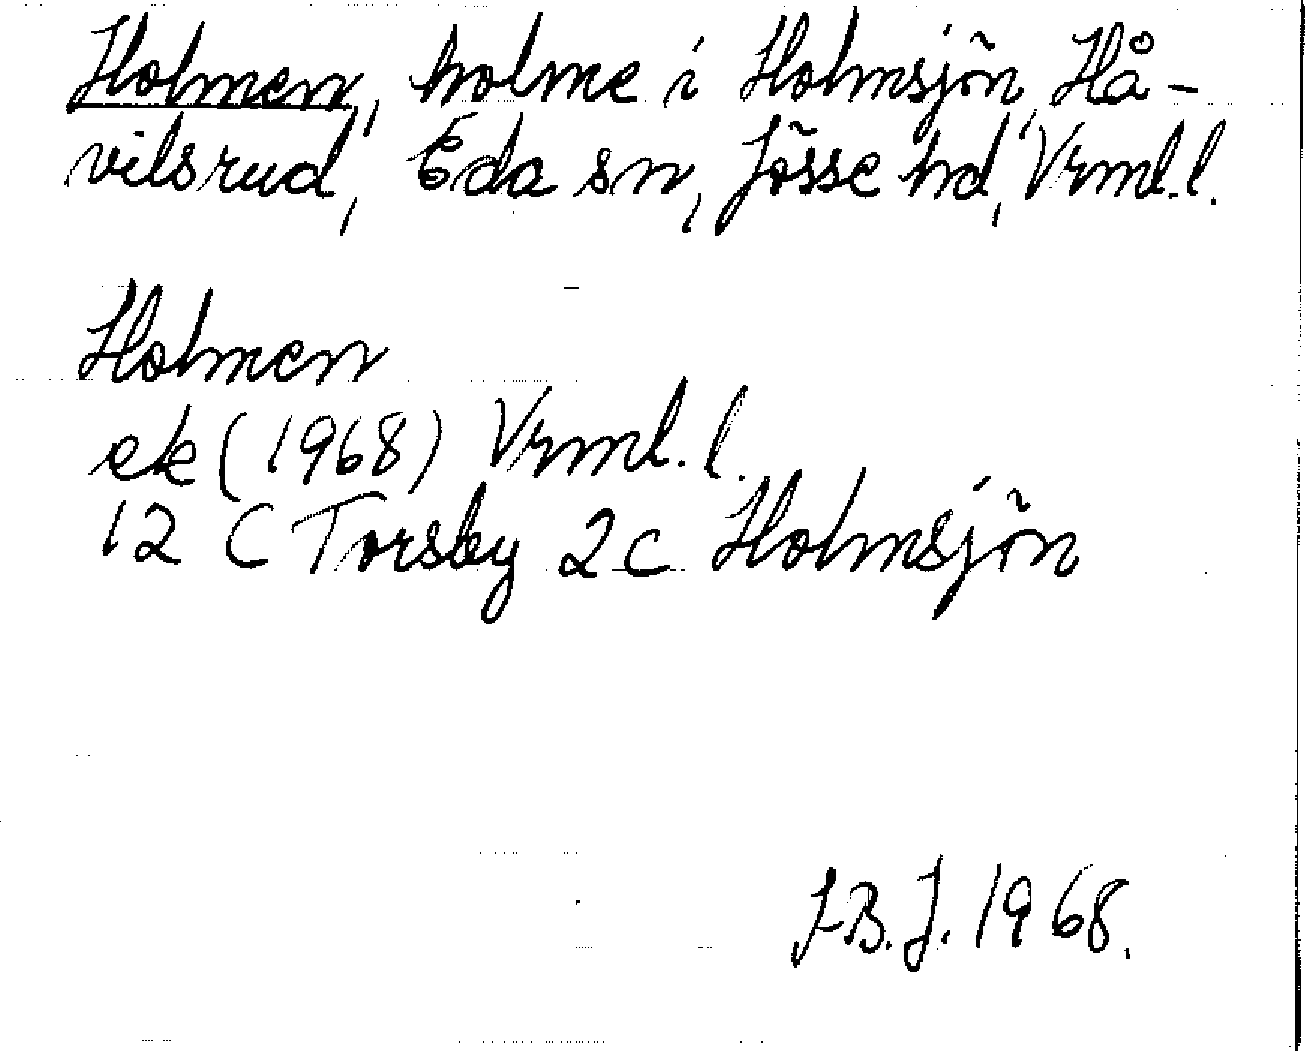 Holmen, holme i Holmsjön, Hå-
vilsrud, Eda sn, Jösse hd, Vrml.l.
Holmen
ek (1968) Vrml.l.
12 C Torsby 2c Holmsjön
J.B.J. 1968.